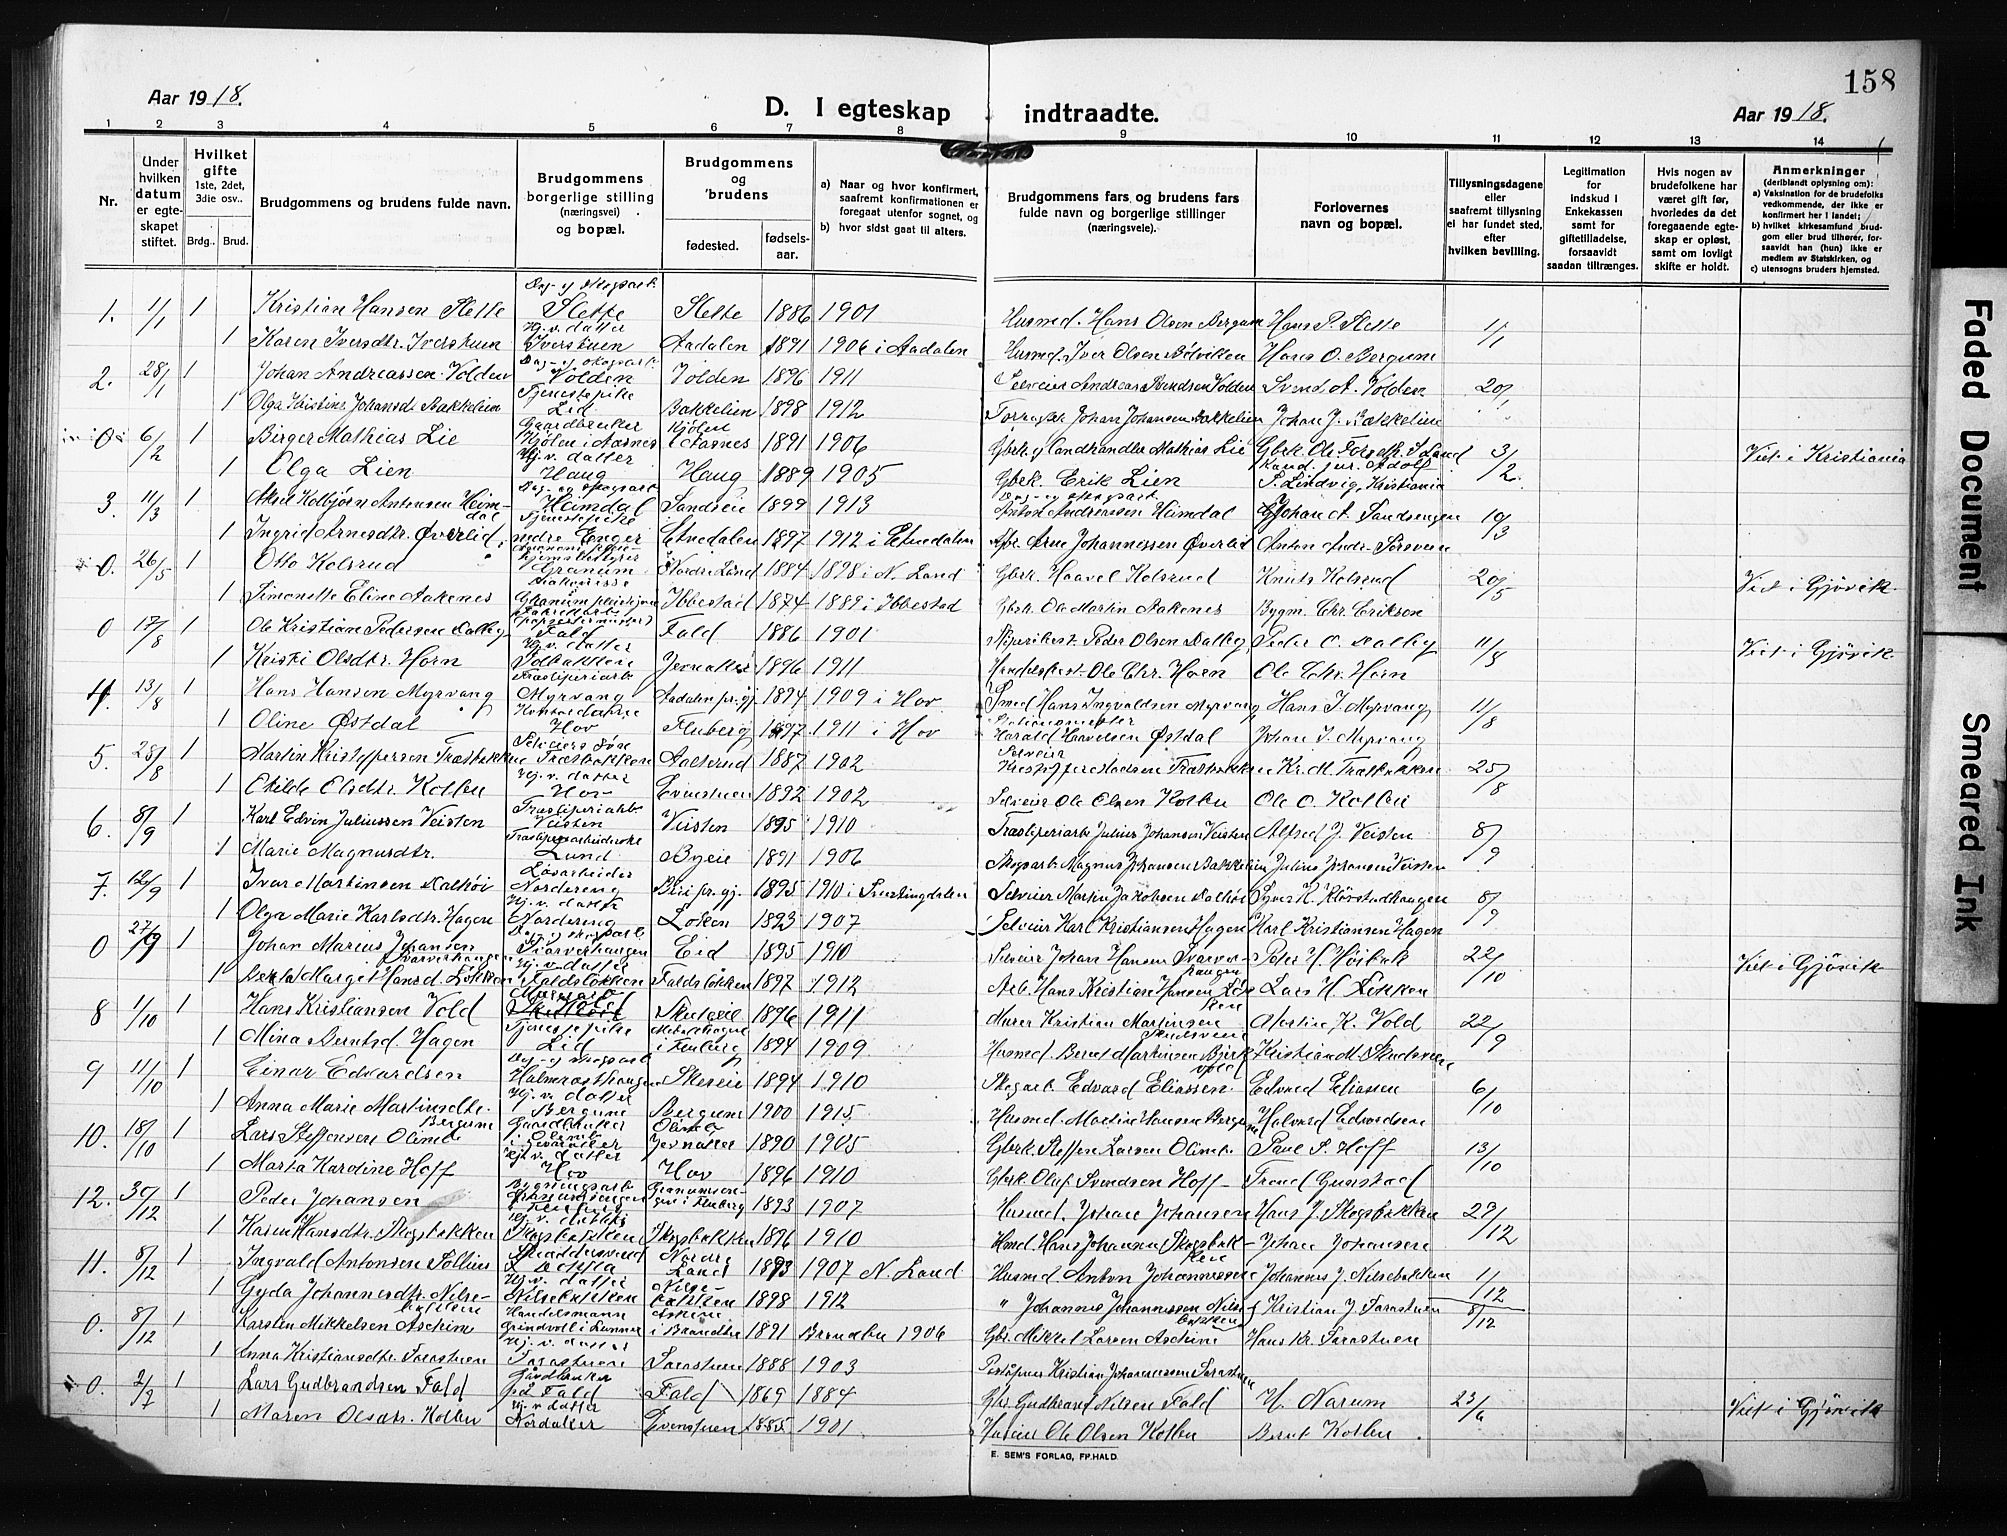 158
Aar 1918.
D. I egteskap indtraadte.
Aar 1918.
1 2 3 4 5 6 7 8 9 10 11 12 13 14
Nr.
Under hvilken datum er egteskapet stiftet.
Hvilket gifte 1ste, 2det, 3die osv..
Brdg.. Brud.
Brudgommens og brudens fulde navn.
Brudgommens borgerlige stilling (næringsvei) og bopæl.
Brudgommens og brudens
fødested.
fødselsaar.
a) Naar og hvor konfirmert, saafremt konfirmationen er foregaat utenfor sognet, og
b) hvor sidst gaat til alters.
Brudgommens fars og brudens fars fulde navn og borgerlige stillinger (næringsveie).
Forlovernes navn og bopæl.
Tillysningsdagene eller saafremt tillysning ei har fundet sted, efter hvilken bevilling.
Legitimation for indskud i Enkekassen samt for giftetilladelse, forsaavidt saadan tiltrænges.
Hvis nogen av brudefolkene har været gift før, hvorledes da det foregaaende egteskap er opløst, samt om lovligt skifte er holdt.
Anmerkninger (deriblandt oplysning om):
a) Vaksination for de brudefolks vedkommende, der ikke er konfirmert her i landet;
b) hvilket kirkesamfund brudgom eller brud tilhører, forsaavidt han (hun) ikke er medlem av Statskirken, og
c) utensogns bruders hjemsted.
1. 1/1 1 Kristian Hansen Slette Dag- og skogsarb. Slette Slette 1886 1901 Husmd. Hans Olsen Bergum Hans P. Slette 1/1
1 Karen Iversdtr. Iverstuen Hj.v. datter Iverstuen Aadalen 1891 1906 i Aadalen Husmd. Iver Olsen Bølviken Hans O. Bergum
2. 28/1 1 Johan Andreassen Volden Dag- og skogsarb. Volden Volden 1896 1911 Selveier Andreas Svendsen Volden Svend A. Volden 20/1
1 Olga Kristine Johansd. Bakkelien Tjenestepike Lid Bakkelien 1898 1912 Johan Johansen Bakkelien Johan J. Bakkelien
0 6/2 1 Birger Mathias Lie Gaardbruker Kjølen i Aasnes Kjølen i Aasnes 1891 1906 Gbrk. og landhandler Mathias Lie Gbrk. Ole Forseth, S. Land 3/2 Viet i Kristiania
1 Olga Lien Hj.v. datter Haug Haug 1889 1905 Gbrk. Erik Lien Kand. jur. Adolf S. Lindvig, Kristiania
3. 11/3 1 Aksel Kolbjørn Antonsen Heimdal Dag- og skogsarb. Heimdal Sandseie 1899 1913 Dag- og skogsarb. Anton Andreassen Heimdal Johan A. Sandsengen 10/3
1 Ingrid Arnesdtr. Øverlid Tjenestepike nedre Enger Etnedalen 1897 1912 i Etnedalen Arne Johannessen Øverlid Anton Andr. Sørsveen
0. 26/5 1 Otto Kolsrud Granum Nordre Land 1884 1898 i N. Land Gbrk. Haavel Kolsrud Knut Kolsrud 20/5 Viet i Gjøvik
1 Simonette Eline Aakenes Diakonisse Granum pleiehjem Ibbestad 1874 1889 i Ibbestad Gbrk. Ole Martin Aakenes Bygm. Chr. Eriksen
0 17/8 1 Ole Kristian Pedersen Dalby Fald Fald 1886 1901 Peder Olsen Dalby Peder O. Dalby 11/8 Viet i Gjøvik
1 Kristi Olsdtr. Horn Hj.v. datter Solbakken Jevnaker 1896 1911 Ole Chr. Horn Ole Chr. Horn
4. 13/8 1 Hans Hansen Myrvang Træsliperiarb. Myrvang Aadalen pr.gj. 1894 1909 i Hov Smed Hans Ingvaldsen Myrvang Hans I. Myrvang 11/8
1 Oline Østdal Kontordame Hov Fluberg 1897 1911 i Hov Stationsmester Harald Haavelsen Østdal Johan I. Myrvang
5. 28/8 1 Martin Kristoffersen Træsbakken Selveiers søn Træsbakken Aalserud 1887 1902 Selveier Kristoffer Madsen Træsbakken Kr. M. Træsbakken 25/8
1 Otilde Olsdtr. Kolbu Hj.v. datter Hov Evenstuen 1892 1902 Selveier Ole Olsen Kolbu Ole O. Kolbu
6. 8/9 1 Karl Edvin Juliussen Veisten Træsliperiarb. Veisten Veisten 1895 1910 Træsliperiarb. Julius Johansen Veisten Alfred J. Veisten 8/9
1 Marie Magnusdtr. Træsliperiarbeiderske Lund Byeie 1891 1906 Skogsarb. Magnus Johansen Bakkelien Julius Johansen Veisten
7. 12/9 1 Ivar Martinsen Dalhøi Løsarbeider Nordereng Biri pr.gj. 1895 1910 i Snertingdalen Selveier Martin Jakobsen Dalhøi Syver K. Kløvstadhaugen 8/9
1 Olga Marie Karlsdtr. Hagen Hj.v. datter Nordereng Løken 1893 1907 Selveier Karl Kristiansen Hagen Karl Kristiansen Hagen
0 27/9 1 Johan Marius Johansen Svarverhaugen Dag- og skogsarb. Svarverhaugen Eid 1895 1910 Selveier Johan Hansen Svarverhaugen Peter H. Høibak 22/10 Viet i Gjøvik
1 Berta Margit Hansd. Løkken Hj.v. datter Faldsløkken Faldsløkken 1897 1912 Arb. Hans Kristian Hansen Løkken Lars H. Løkken
8 1/10 1 Hans Kristiansen Vold Vold Skuteeie 1896 1911 Murer Kristian Martinsen Skudsveen Martin K. Vold 22/9
1 Mina Berntsd. Hagen Tjenestepike Lid i Fluberg 1894 1909 Husmd. Bernt Martinsen Bjerkvold Kristian M. Skudsveen
9 11/10 1 Einar Edvardsen Dag- og skogsarb. Halmrasthaugen Skeieie 1894 1910 Skogsarb. Edvard Eliassen Edvard Eliassen 6/10
1 Anna Marie Martinsdtr. Bergum Hj.v. datter Bergum Bergum 1900 1915 Husmd. Martin Hansen Bergum Halvard Edvardsen
10. 18/10 1 Lars Steffensen Olimb Gaardbruker Olimb i Jevnaker Olimb Jevnaker 1890 1905 Gbrk. Steffen Larsen Olimb Paul S. Hoff 13/10
1 Marta Kardine Hoff Hj.v. datter Hov Hov 1896 1910 Gbrk. Oluf Svendsen Hoff Trond Gunstad
12. 30/12 1 Peder Johansen Bygningsarb. Granumsengen i Fluberg Granumsengen i Fluberg 1893 1907 Husmd. Johan Johansen Hans J. Skogsbakken 29/12
1 Karen Hansdtr. Skogsbakken Hj.v. datter Skogsbakken Skogsbakken 1896 1910 Hmd. Hans Johansen Skogsbakken Johan Johansen
11. 8/12 1 Ingvald Antonsen Sollien Skræddersvend Nordre Land 1893 1907 N. Land Husmd. Anton Johannessen Johannes J. Nilsebakken 1/12
1 Gyda Johannesdtr. Nilsebakken Hj.v. datter Nilsebakken Nilsebakken 1898 1912 " Johannes Johannessen Nilsebakken Kristian J. Sarastuen 8/12
0. 8/12 1 Karsten Mikkelsen Aschim Handelsmann Grindvoll i Lunner Askim i Brandbu 1891 Brandbu 1906 Gbr. Mikkel Larsen Aschim Hans Kr. Sarastuen
1 Anna Kristiansdtr. Sarastuen Hj.v. datter Sarastuen Sarastuen 1888 1903 Kristian Johannessen Sarastuen
0. 2/7 1 Lars Gudbrandsen Fald Gårdbruker på Fald Fald 1869 1884 Gbr. Gudbrand Nilsen Fald H. Narum 23/6 Viet i Gjøvik
1 Maren Olsdtr. Kolbu Hj.v. datter Nordalter Evenstuen 1885 1901 Ole Olsen Kolbu Bernt Kolbu
E. SEM'S FORLAG, FR.HALD.
Faded Document
Smeared Ink